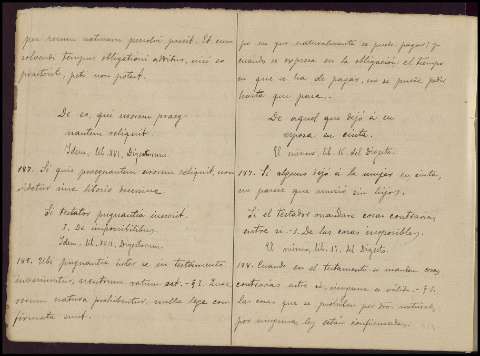 per rerum naturam persolvi possit. Et cum
solvendi tempus obligationi additur, nisi eo
praeterito, peti non potest.
De eo, qui uxorem praeg-
nantem reliquit.
Idem, lib. XVI, Digestorum.
187. Si quis praegnantem uxorem reliquit, non
videtur sine liberis decessisse.
Si testator pugnantia iusserit.
§. De impossibilibus.
Idem, lib. XVII, Digestorum.
188. Ubi pugnantia inter se in testamento
iuberentur, neutrum ratum est. - § 1. Quae
rerum natura prohibentur, nulla lege con-
firmata sunt.
po en que naturalmente se puede pagar; y
cuando se expresa en la obligación el tiempo
en que se ha de pagar, no se puede pedir
hasta que pase.
De aquel que dejó á su
esposa en cinta.
El mismo, lib. 16 del Digesto.
187. Si alguno dejó á la mujer en cinta,
no parece que murió sin hijos.
Si el testador mandare cosas contrarias
entre sí. - §. De las cosas imposibles.
El mismo, lib. 17, del Digesto.
188. Cuando en el testamento se mandan cosas
contrarias entre sí, ninguna es válida. - § 1.
las cosas que se prohiben por dro. natural,
por ninguna ley están confirmadas.